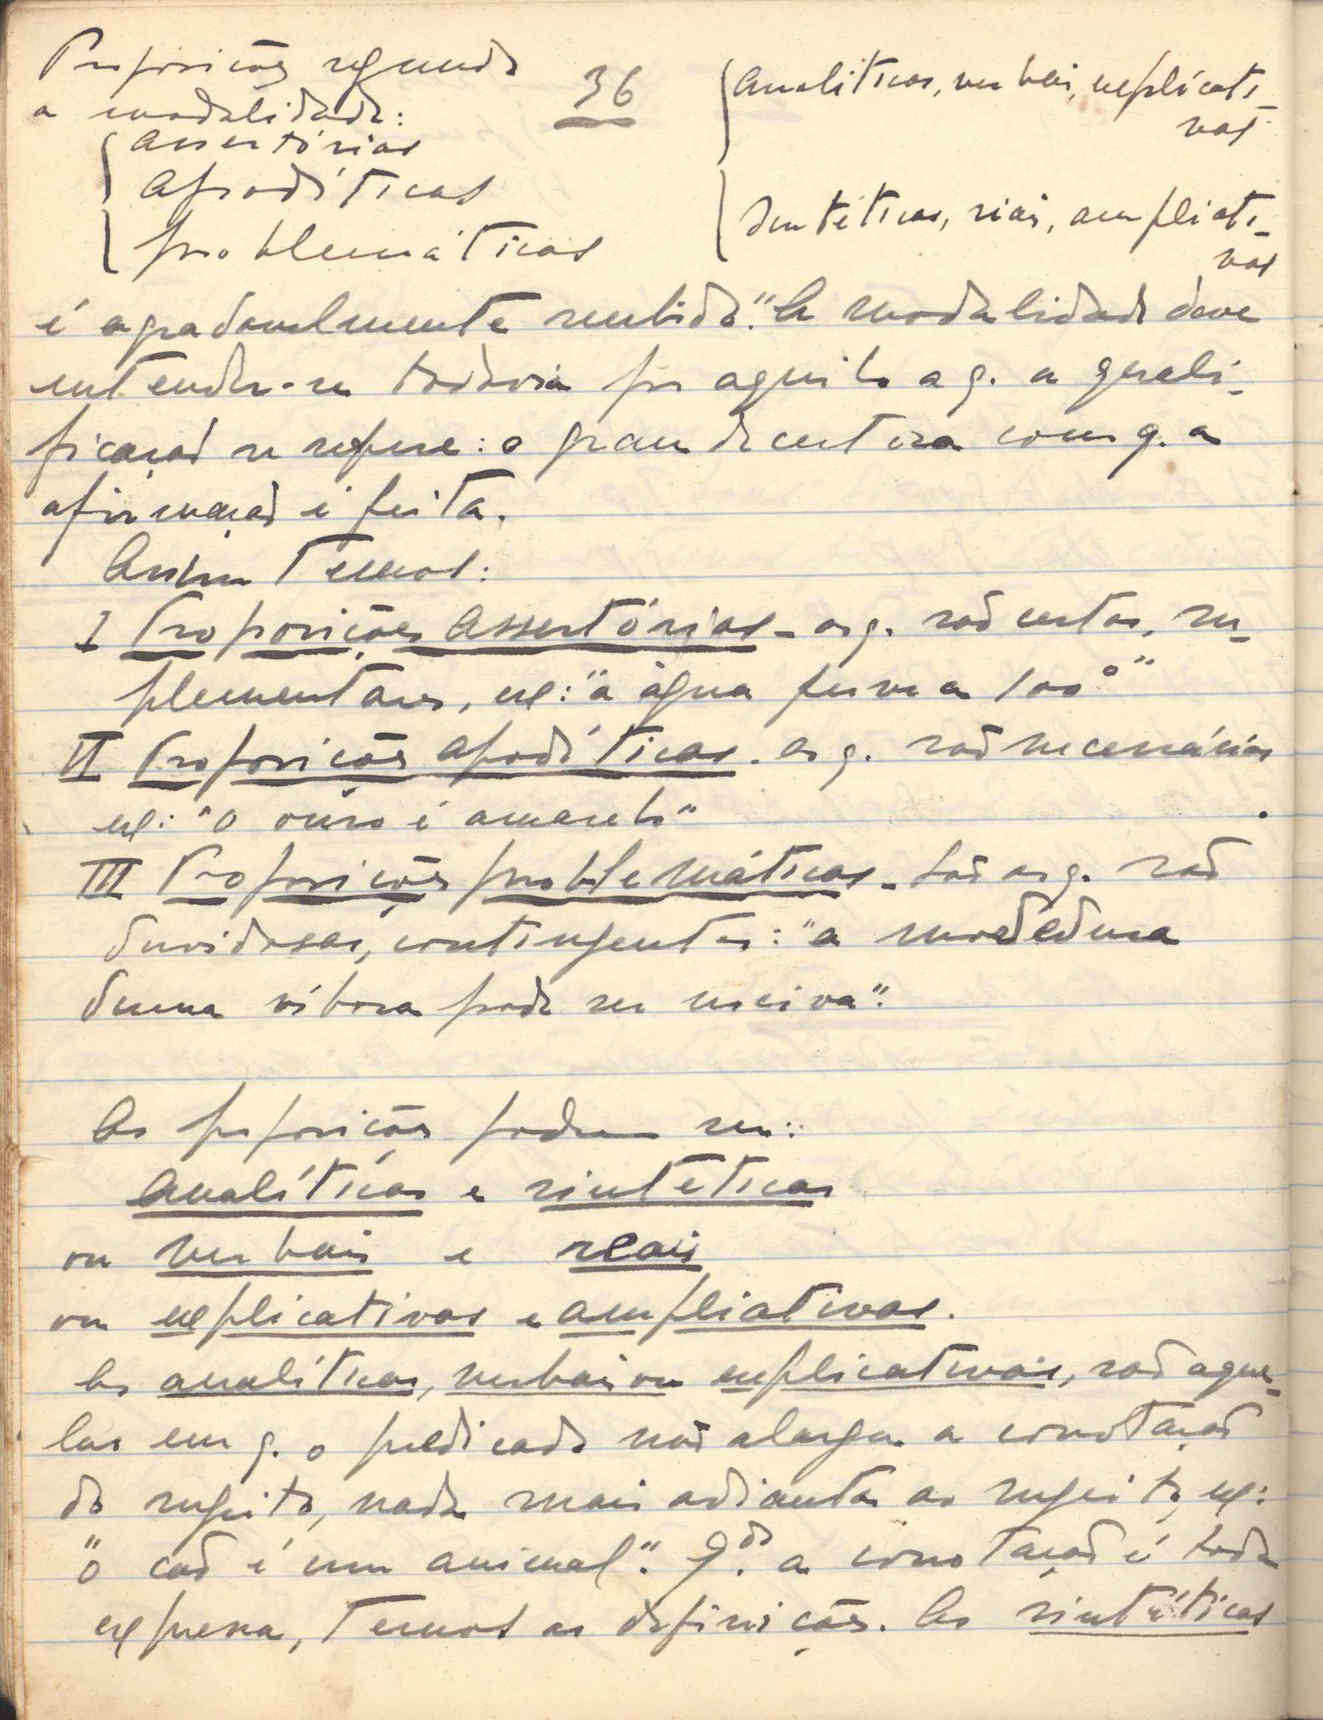 Proposições segundo
a modalidade:
assertórias
apodíticas
problemáticas
36
analíticas, verbais, explicati-
vas
Sintéticas, riais, ampliati-
vas
é agradavelmente sentido". A modalidade deve
entender-se todavia por aquilo a q. a quali-
ficação se refere: o grau de certeza com q. a
afirmação é feita.
Assim temos:
I Proposições Assertórias - as q. são certas,
plementares, ex: "a àgua ferve a 100°"
II Proposições apodíticas - as q. são necessárias
ex: "o ouro é amarelo"
III Proposições problemáticas - São as q. são
duvidosas, contingentes: "a mordedura
duma víbora pode ser nociva".
As proposições podem ser:
analíticas e sintéticas
ou verbais e reais
ou explicativas e ampliativas.
As analíticas, verbais ou explicativas, são aque-
las em q. o predicado não alarga a conotação
do sujeito, nada mais adianta ao sujeito, ex:
"o cão é um animal". Q.do a conotação é toda
expressa, temos as definições. As sintéticas